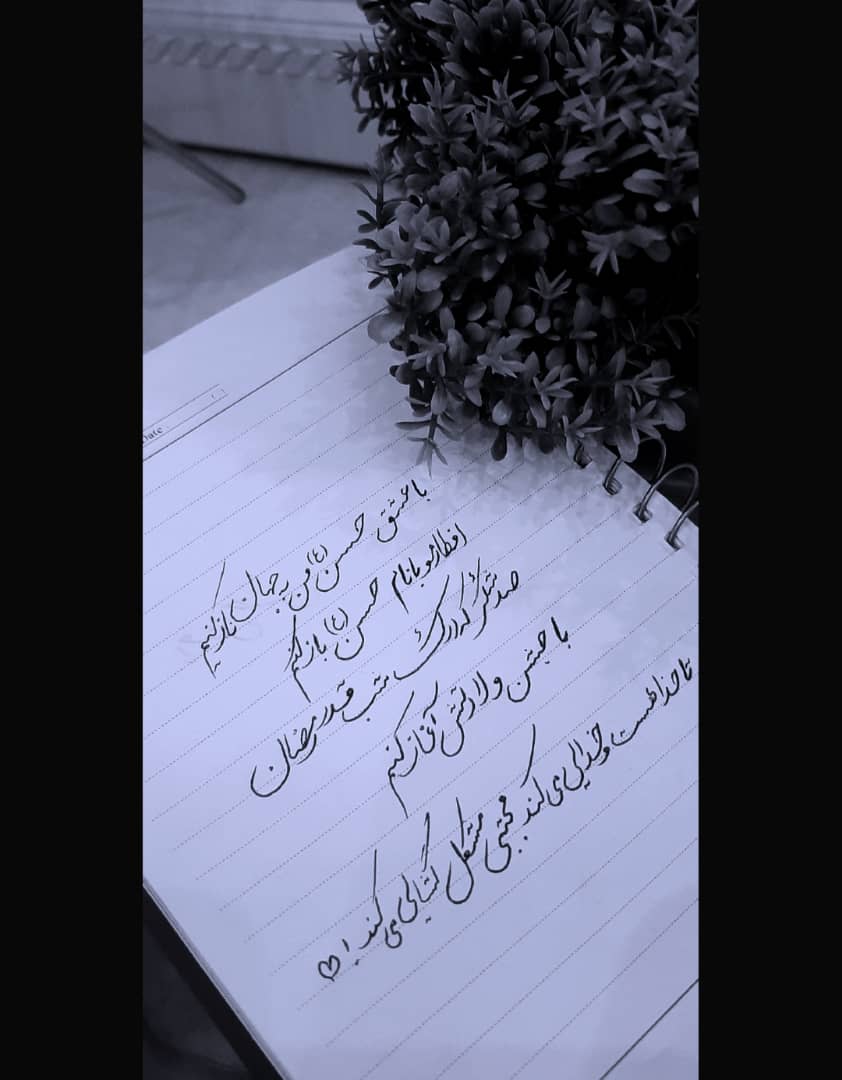 Date
با عشق حسن (ع) من به جهان ناز کنیم
افطارمو با نام حسن (ع) باز کنم
صد شکر که درک شب قدر رمضان
با جشن ولادتش آغاز کنیم
تا خدا هست و خدایی می کند مجتبی مشکل گشایی می کند! ♡